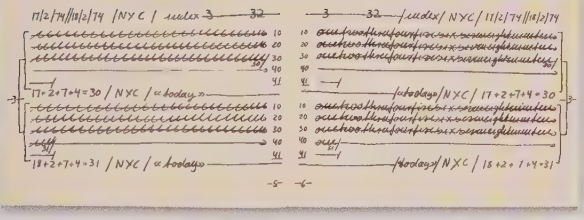 17/2/74//18/2/74 / NYC / index 3 32
10
20
30
30/
40
41
17+2+7+4=30 / NYC / «today»
3
10
20
30
40
31/
41
18+2+7+4=31 / NYC / «today»
-5-
3 32 / index / NYC / 17/2/74 // 18/2/74
10 onetwothreefourfivesixseveneightnineten
20 onetwothreefourfivesixseveneightnineten
30 onetwothreefourfivesixseveneightnineten
30/
40
41
/«today»/ NYC / 17+2+7+4=30
3
10 onetwothreefourfivesixseveneightnineten
20 onetwothreefourfivesixseveneightnineten
30 onetwothreefourfivesixseveneightnineten
40 one/
31/
41
/«today»/ NYC / 18+2+7+4=31
-6-